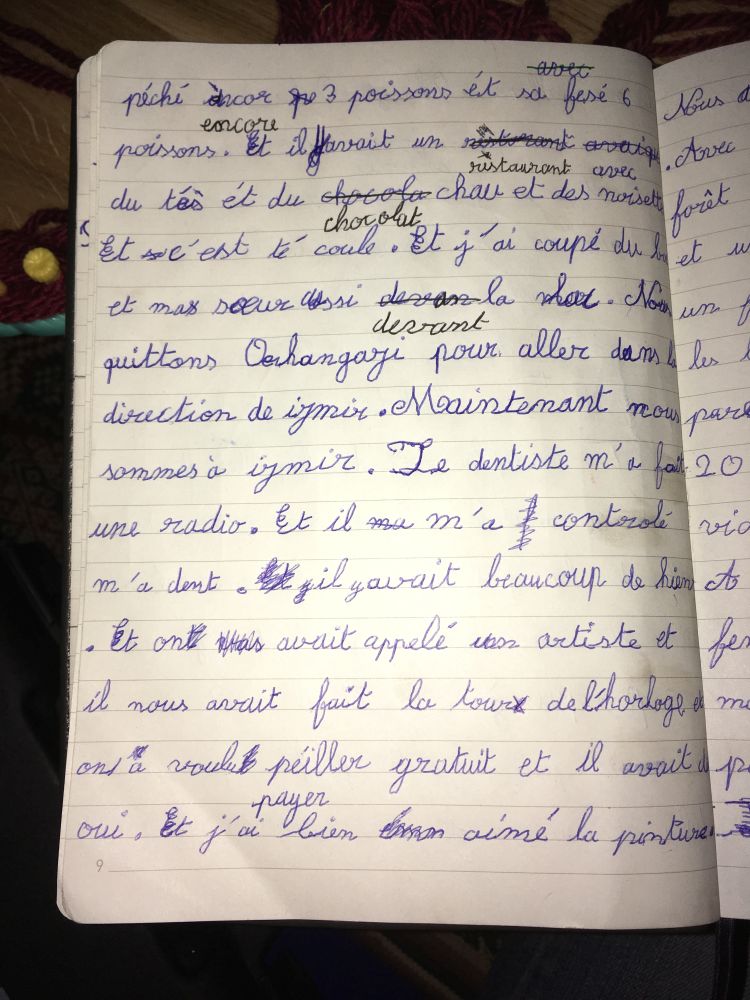 avec
péché encor 3 poissons ét sa fesé 6
encore
poissons. Et il yavait un restaurant
réstaurant avec
du tés ét du chocola chau et des noisett
chocolat
Et c'est té coule. Et j'ai coupé du
et ma sœur assi devan la mer. Nous
devant
quittons Orhangazi pour aller dans la
direction de izmir. Maintenant nous
sommes à izmir. Le dentiste m'a fait
une radio. Et il m'a controlé
m'a dent. il yavait beaucoup de hien
. Et on avait appelé un artiste et
il nous avait fait la tour de l'horloge et
on a voulu péiller gratuit et il avait d
payer
oui. Et j'ai bien aimé la pinture.
9
Nous
. Avec
forêt
et u
un f
les
parc
20
vid
A
fem
m
p